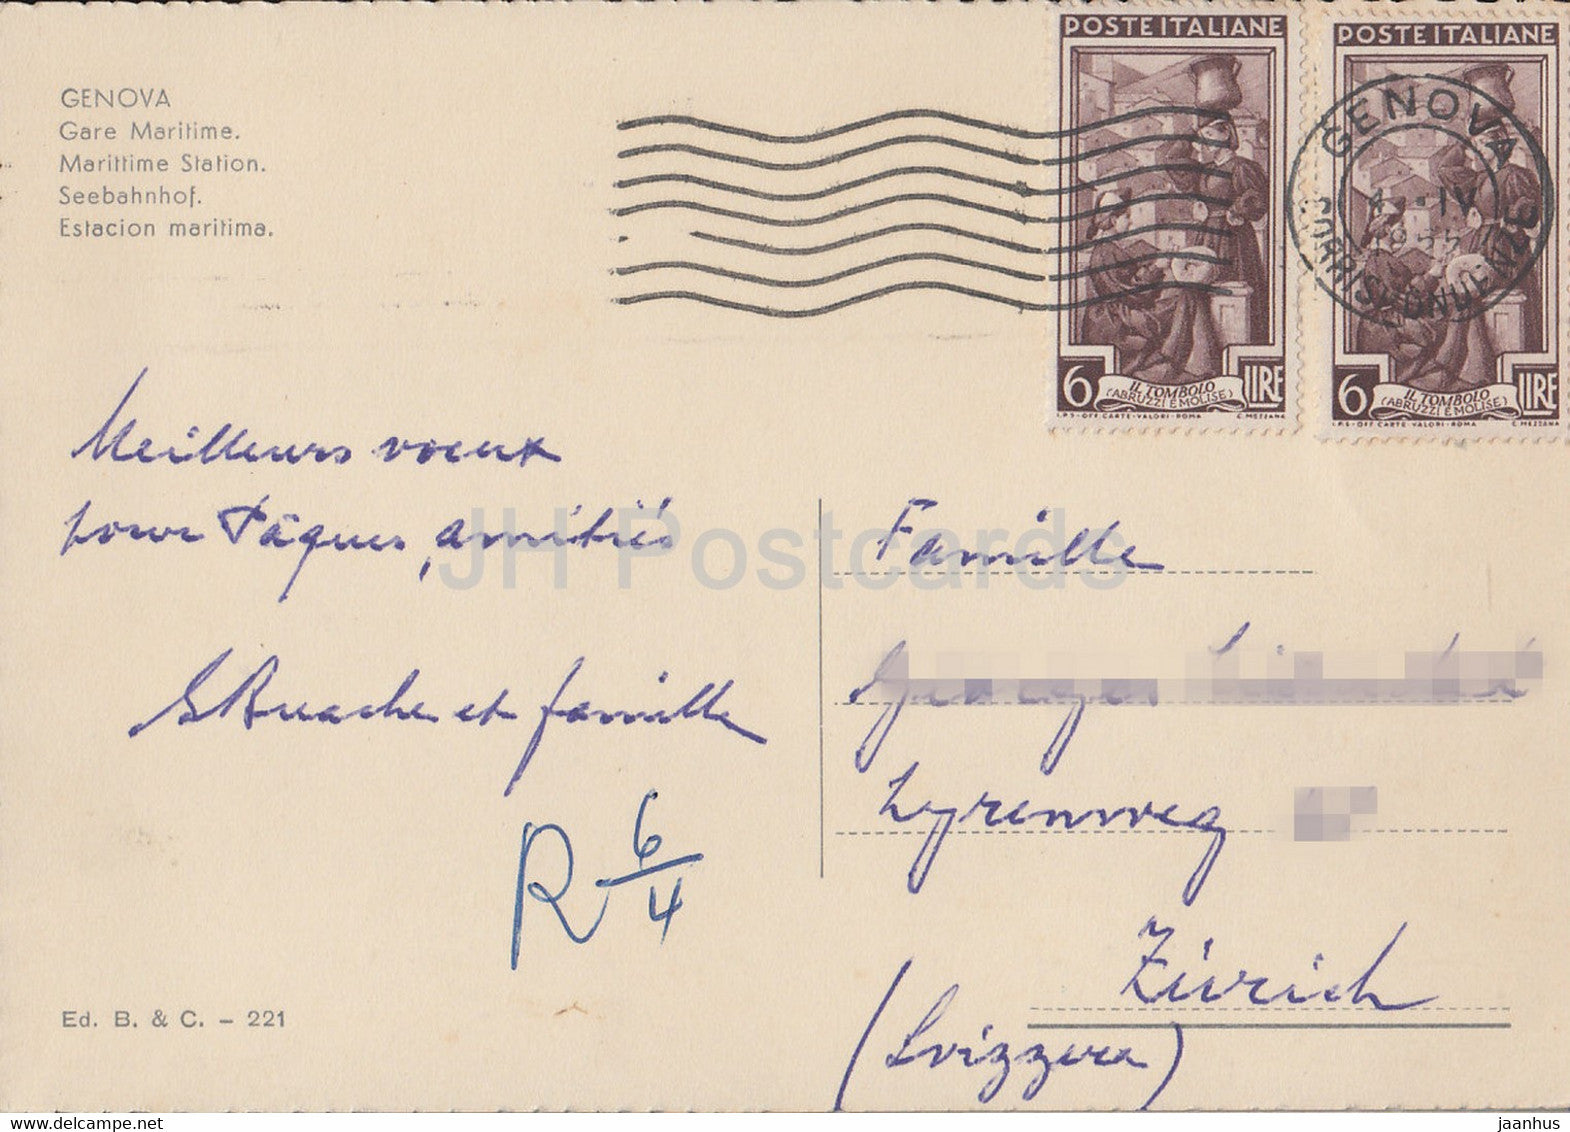 GENOVA
Gare Maritime.
Marittime Station.
Seebahnhof.
Estacion maritima.
POSTE ITALIANE
6 LIRE
IL TOMBOLO
(ABRUZZI E MOLISE)
I.P.S-OFF. CARTE-VALORI-ROMA C. MEZZANA
POSTE ITALIANE
6 LIRE
IL TOMBOLO
(ABRUZZI E MOLISE)
I.P.S-OFF. CARTE-VALORI-ROMA C. MEZZANA
GENOVA
IV
CORRISPONDENZE
Meilleurs voeux
pour Pâques, amitiés
et famille
R 6/4
Famille
Zürich
(Svizzera)
Ed. B. & C. - 221
JH Postcards
delcampe.net
jaanhus